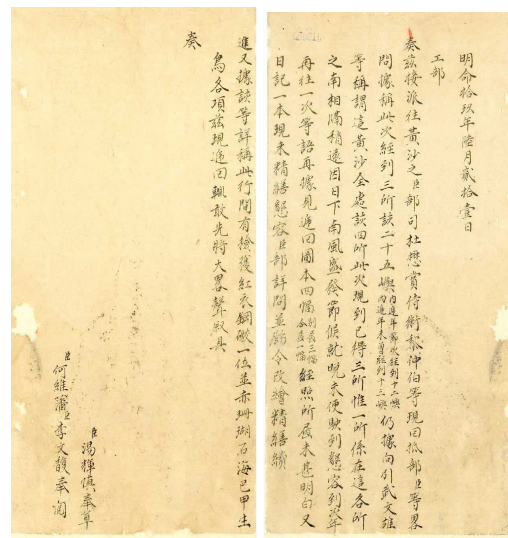 明命拾玖年陸月貳拾壹日
工部
奏茲接派往黃沙之臣部司杜懋賞侍衛黎仲伯等現回抵部臣等畧
問據稱此次經到三所該二十五嶼內遞年節次經到十二嶼內遞年未曾經到十三嶼仍據向引武文雄
等稱謂這黃沙全處該四所此次現到已得三所惟一所係在這各所
之南相隔稍遠因日下南風盛發節候就晚未便駛到懇容到次年
再往一次等語再據見遞回圖本四幅別長三幅合長一幅經照所屬未甚明白又
日記一本現未精繕懇容臣部詳問並飭令改繪精繕續
進又據該等詳稱此行間有撿獲紅衣銅礮一位並赤珊瑚石海巴甲生
鳥各項茲現遞回輒敢先將大畧聲敘具
奏
臣湯輝慎奉草
臣何維藩臣李文馥奉閱